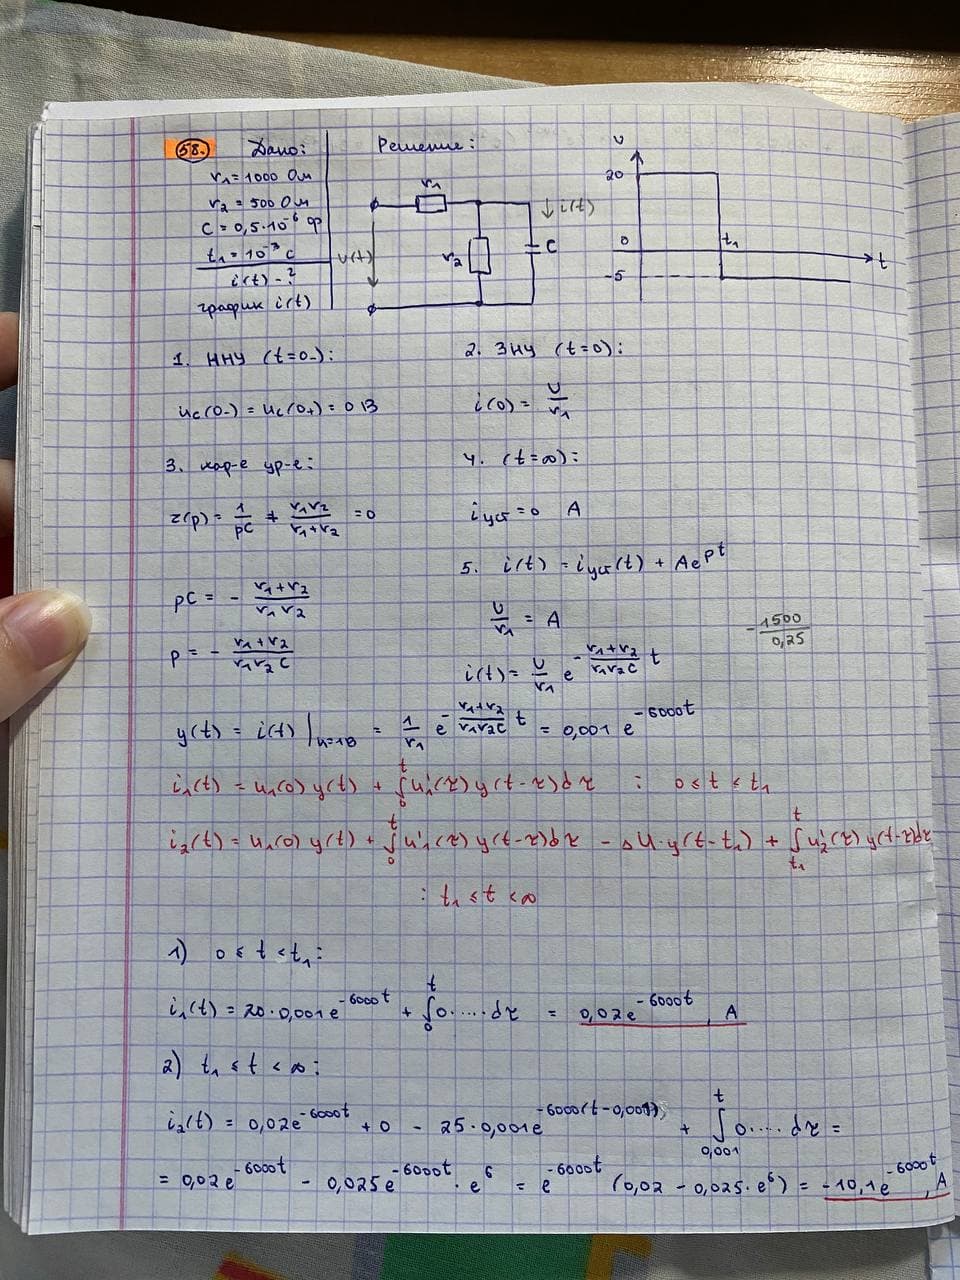 58. Дано: Решение:
r₁ = 1000 Ом
r₂ = 500 Ом
C = 0,5·10⁻⁶ Ф
t₁ = 10⁻³ с
i(t) - ?
график i(t)
r₁
r₂
C
↓ i(t)
U(t)
U
20
0
-5
t₁
t
1. ННУ (t=0₋):
u_C(0₋) = u_C(0₊) = 0 В
2. ЗНУ (t=0):
i(0) = U/r₁
3. хар-е ур-е:
z(p) = 1/(pC) + r₁r₂/(r₁+r₂) = 0
pC = - (r₁+r₂)/(r₁r₂)
p = - (r₁+r₂)/(r₁r₂C)
4. (t=∞):
i_уст = 0 А
5. i(t) = i_уст(t) + Ae^(pt)
U/r₁ = A
- 1500/0,25
i(t) = U/r₁ e^(-(r₁+r₂)/(r₁r₂C) t)
y(t) = i(t)|_(u=1В) = 1/r₁ e^(-(r₁+r₂)/(r₁r₂C) t) = 0,001 e^(-6000t)
i₁(t) = u₁(0) y(t) + ∫₀ᵗ u₁'(τ) y(t-τ)dτ : 0 ≤ t < t₁
i₂(t) = u₁(0) y(t) + ∫₀ᵗ u₁'(τ) y(t-τ)dτ - ΔU·y(t-t₁) + ∫_(t₁)^t u₂'(τ) y(t-τ)dτ
: t₁ ≤ t < ∞
1) 0 ≤ t < t₁:
i₁(t) = 20·0,001e^(-6000t) + ∫₀ᵗ 0.....dτ = 0,02e^(-6000t), А
2) t₁ ≤ t < ∞:
i₂(t) = 0,02e^(-6000t) + 0 - 25·0,001e^(-6000(t-0,001)) + ∫_(0,001)^t 0.... dτ =
= 0,02e^(-6000t) - 0,025e^(-6000t)·e⁶ = e^(-6000t) (0,02 - 0,025·e⁶) = -10,1e^(-6000t), А